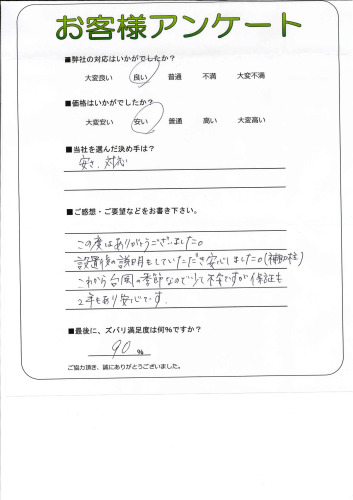 お客様アンケート
■弊社の対応はいかがでしたか?
大変良い 良い 普通 不満 大変不満
■価格はいかがでしたか?
大変安い 安い 普通 高い 大変高い
■当社を選んだ決め手は?
安さ、対応
■ご感想・ご要望などをお書き下さい。
この度はありがとうございました。
設置後の説明もしていただき安心しました。(補助柱)
これから台風の季節なので少し不安ですが保証も
2年もあり安心です。
■最後に、ズバリ満足度は何%ですか?
90 %
ご協力頂き、誠にありがとうございました。